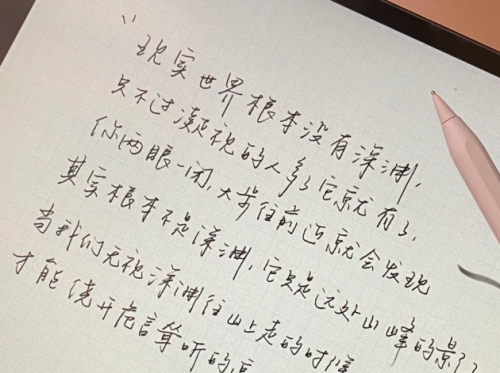 "现实世界根本没有深渊,
只不过凝视的人多了它就有了,
你两眼一闭,大步往前迈就会发现
其实根本不是深渊,它只是远处山峰的影子
当我们无视深渊往山上走的时候
才能绕开危言耸听的